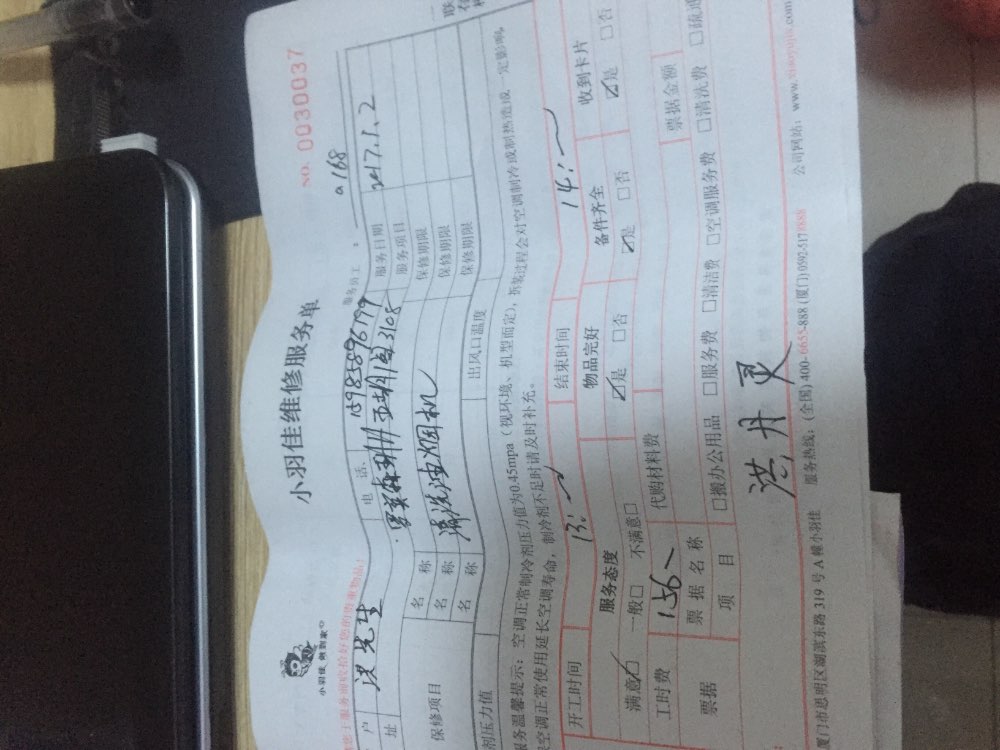 小羽佳维修服务单
NO. 0030037
小羽佳 做到家
服务前收拾好您的贵重物品：
服务员工：a168
户 洪先生 电话 15985896799 服务日期 2017.1.2
址 3108 服务项目
保修项目 名称 清洗油烟机 保修期限
名称 保修期限
名称 保修期限
剂压力值 出风口温度
服务温馨提示：空调正常制冷剂压力值为0.45mpa（视环境、机型而定），拆装过程会对空调制冷或制热造成一定影响
空调正常使用延长空调寿命，制冷剂不足时请及时补充。
开工时间 13: 结束时间 14:
服务态度 物品完好 备件齐全 收到卡片
满意☑ 一般□ 不满意□ ☑是 □否 ☑是 □否 ☑是 □否
工时费 156 代购材料费 票据金额
票据 票据名称
项目 □搬办公用品 □服务费 □清洁费 □空调服务费 □清洗费 □疏通
洪丹灵
厦门市思明区湖滨东路 319 号 A 幢小羽佳 服务热线：(全国) 400-6655-888 (厦门) 0592-5178888 公司网站：www.xiaoyujia.com